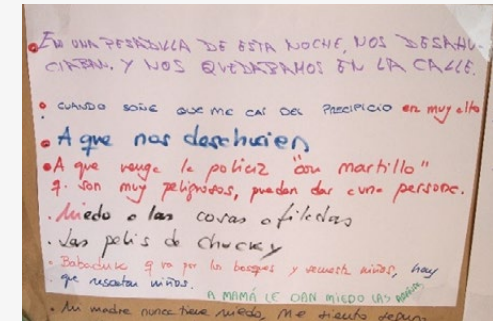 EN UNA PESADILLA DE ESTA NOCHE, NOS DESAHU-
CIABAN. Y NOS QUEDABAMOS EN LA CALLE.
• CUANDO SOÑE QUE ME CAI DEL PRECIPICIO en muy alto
• A que nos deschucien
• A que venga la policia "con martillo"
q. son muy peligrosos, pueden dar a una persona.
• Miedo a las cosas afiladas
• Las pelis de Chucky
• Babaduk q va por los bosques y secuestra niños, hay
que rescatar niños.
A MAMÁ LE DAN MIEDO LAS
• Mi madre nunca tiene miedo, me siento segura